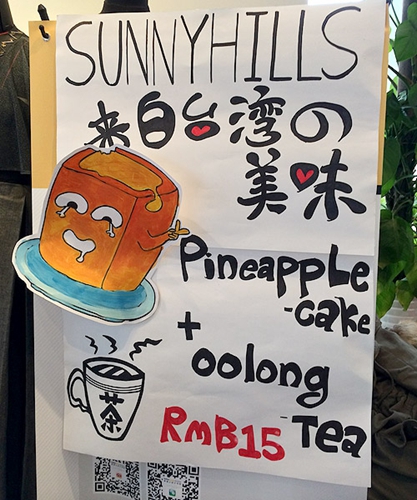 SUNNYHILLS
来自台湾の
美味
Pineapple
-cake
+ oolong
RMB15 -Tea
茶